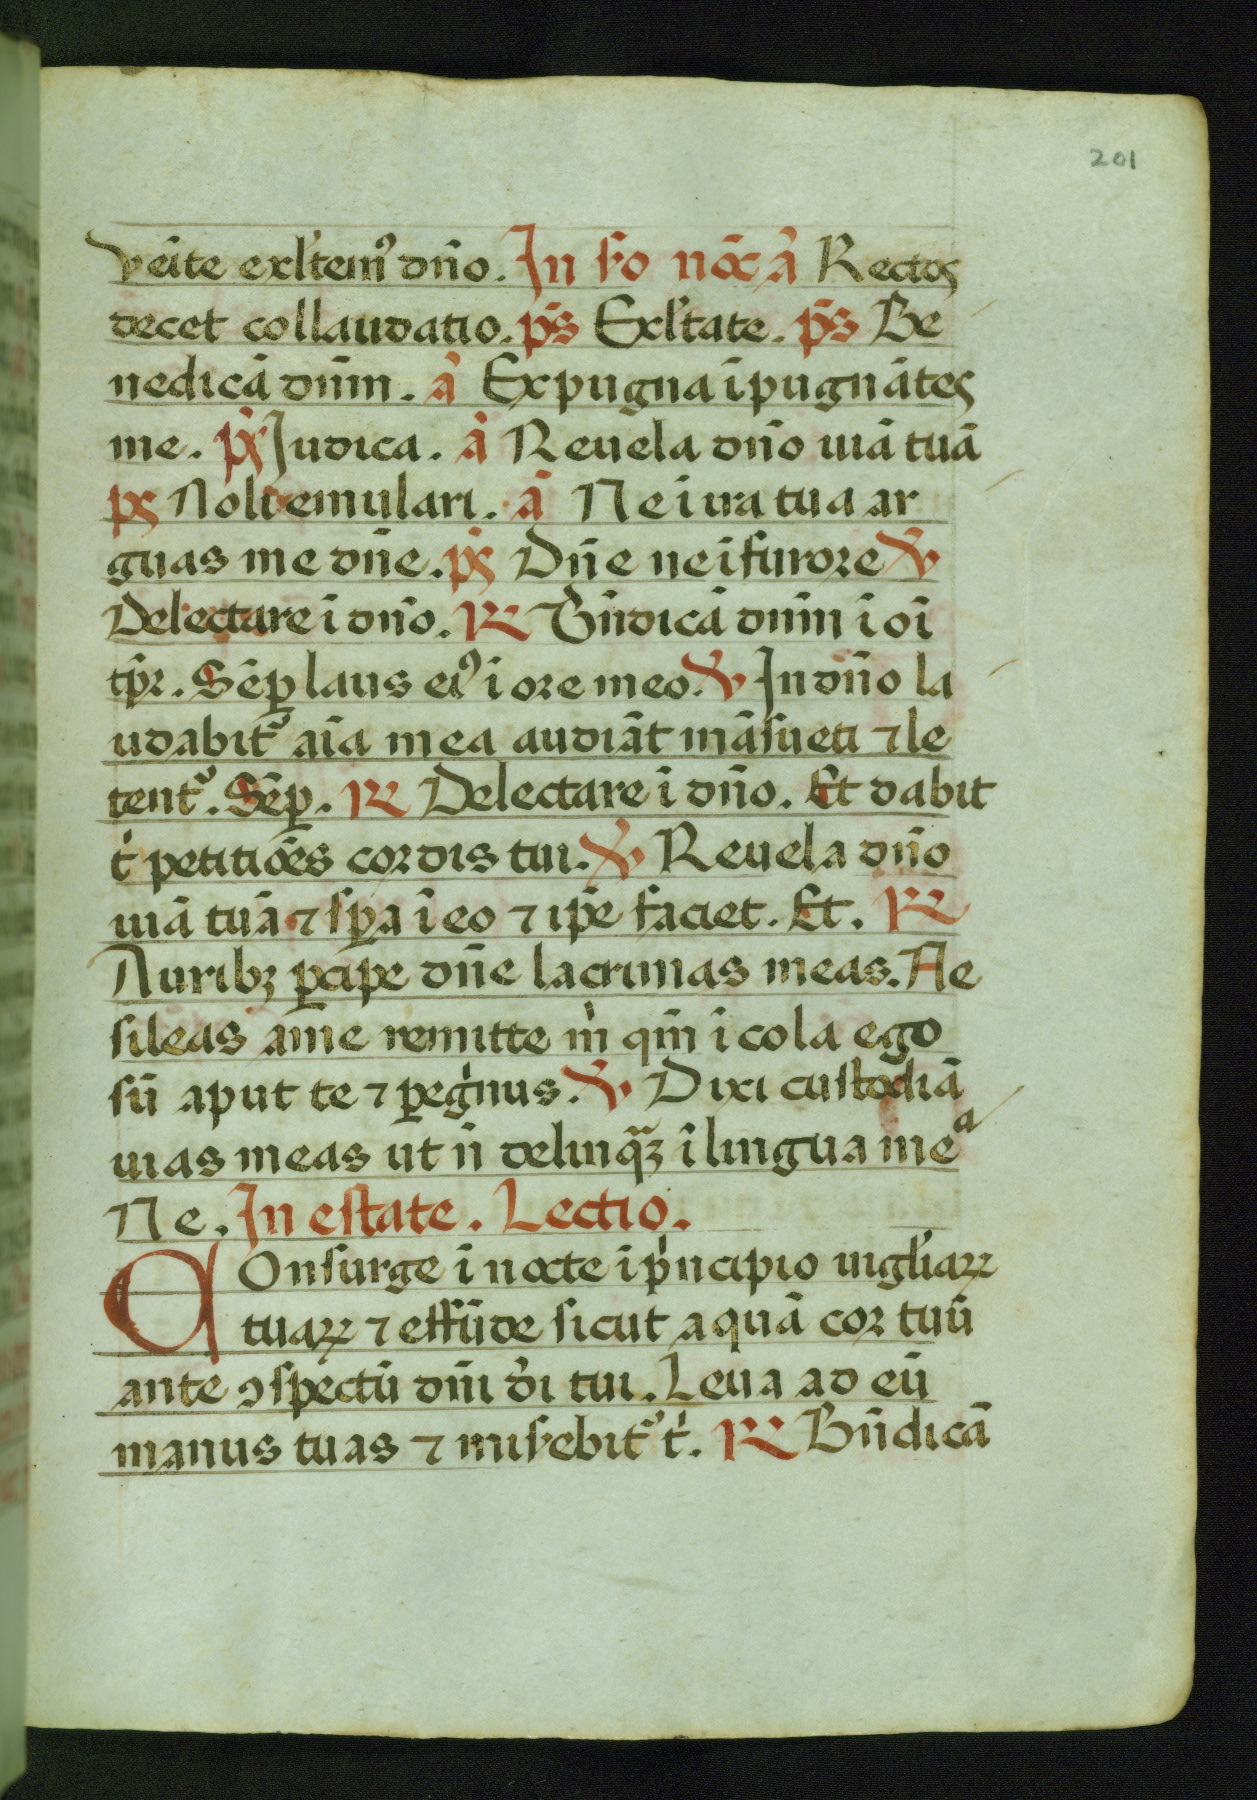 201
veĩte exl'temꝰ dño. In s'o nõc ã Rectos
decet collaudatio. p̃s Exl'tate. p̃s Be
nedicã dñm. ã Expugna ĩpugnãtes
me. p̃s Judica. ã Reuela dño uiã tuã
ps Noli emulari. ã Ne i ira tua ar
guas me dñe. p̃s Dñe ne ĩ furore ℣
Delectare ĩ dño. ℟ Bñdicã dñm ĩ oĩ
tp̃r. Sẽꝑ laus eiꝰ ĩ ore meo. ℣ In dño la
udabit᷑ aĩa mea audiãt mãsueti ⁊ le
tent᷑. Sẽꝑ. ℟ Delectare ĩ dño. Et dabit
t' petitiões cordis tui. ℣ Reuela dño
uiã tuã ⁊ sꝑa ĩ eo ⁊ ip̃e faciet. Et. ℟
Auribꝫ ꝑcipe dñe lacrimas meas. Ne
sileas a me remitte m' qm̃ icola ego
sũ aput te ⁊ ꝑeg'nus. ℣ Dixi custodiã
uias meas ut ñ delinq̃ꝫ ĩ lingua mea
Ne. In estate. Lectio.
Consurge ĩ nocte ĩ p'ncipio uigl'iaꝝ
tuaꝝ ⁊ effũde sicut aquã cor tuũ
ante ꝯspectũ dñi d'i tui. Leua ad eũ
manus tuas ⁊ mis'ebit᷑ t'. ℟ Bñdicã